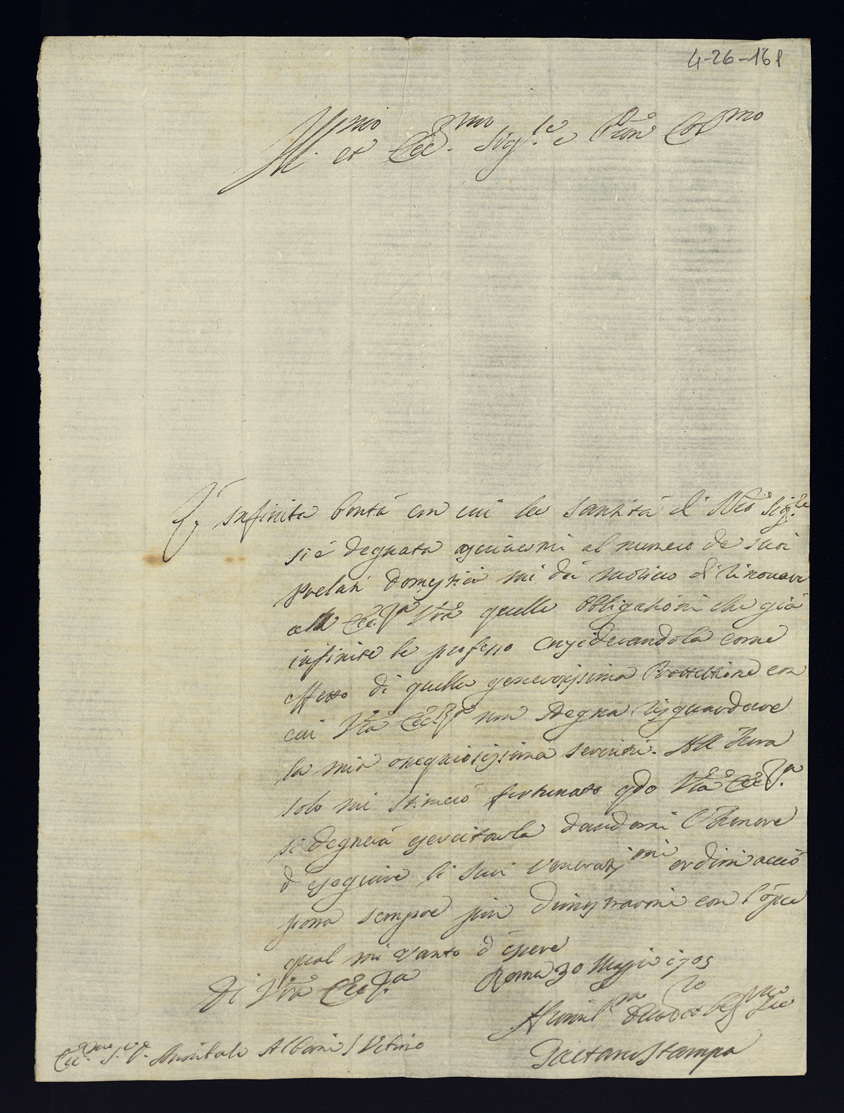 4-26-168
Ill.mo et Ecc.mo Sig.re e Pron Col.mo
L' infinita bontà con cui la Santità di Nro Sig.re
si è degnata asciriermi al numero de suoi
Prelati domestici mi dà motivo di rinovare
alla Ecc.za Vra quelle obligazioni che già
infinite le professo considerandola come
effetto di quella generosissima Protettione con
cui Vra Ecc.za non sdegna risguardare
la mia ossequiosissima servitù. All' hora
solo mi stimerò fortunato qdo Vra Ecc.za
si degnerà esercitarla dandomi l'honore
d'eseguire li suoi veneratmi ordini acciò
possa sempre più dimostrarmi con l'opre
qual mi vanto d'essere
Di Vra Ecc.za Roma 30 Maggio 1705
Humil.mo devot.mo
Gaetano Stampa
Ecc.mo Sig. Annibale Albani Urbino